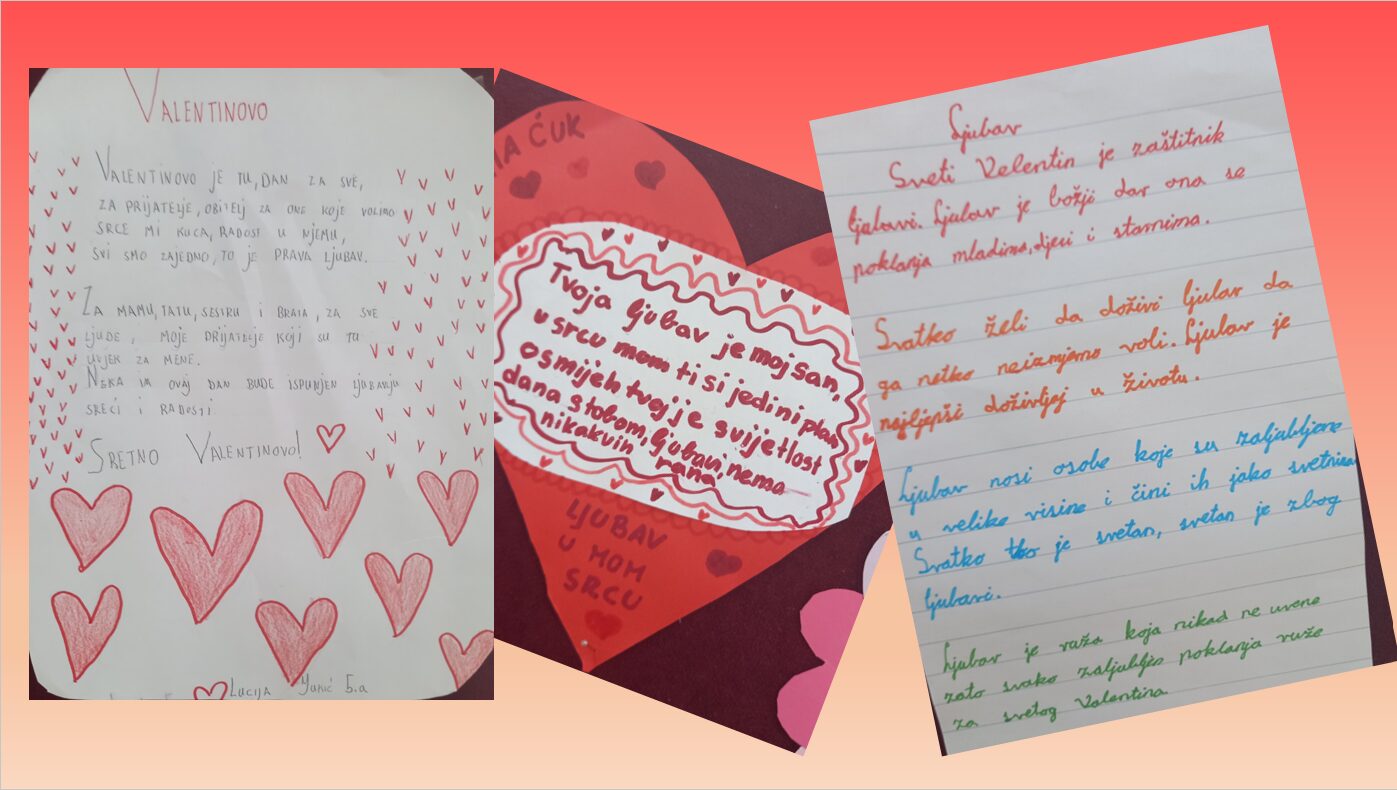 VALENTINOVO
VALENTINOVO JE TU, DAN ZA SVE,
ZA PRIJATELJE, OBITELJ ZA ONE KOJE VOLIMO
SRCE MI KUCA, RADOST U NJEMU,
SVI SMO ZAJEDNO, TO JE PRAVA LJUBAV.
ZA MAMU, TATU, SESTRU I BRATA, ZA SVE
LJUDE, MOJE PRIJATELJE KOJI SU TU
UVJEK ZA MENE.
NEKA IM OVAJ DAN BUDE ISPUNJEN LJUBAVLJU
SREĆI I RADOSTI
SRETNO VALENTINOVO!
LUCIJA 5.a
ĆUK
Tvoja ljubav je moj san,
u srcu mom ti si jedini plan,
osmijeh tvoj je svijetlost
dana s tobom, ljubavi, nema
nikakvih rana.
LJUBAV
U MOM
SRCU
Ljubav
Sveti Velentin je zaštitnik
ljubavi. Ljubav je božji dar ona se
poklanja mladima, djeci i starnima.
Svatko želi da doživi ljubav da
ga netko neizmjerno voli. Ljubav je
najljepši doživljej u životu.
Ljubav nosi osobe koje su zaljubljene
u velike visine i čini ih jako svetnima
Svatko tko je svetan, svetan je zbog
ljubavi.
Ljubav je ruža koja nikad ne uvene
zato svako zaljubljen poklanja ruže
za svetog Valentina